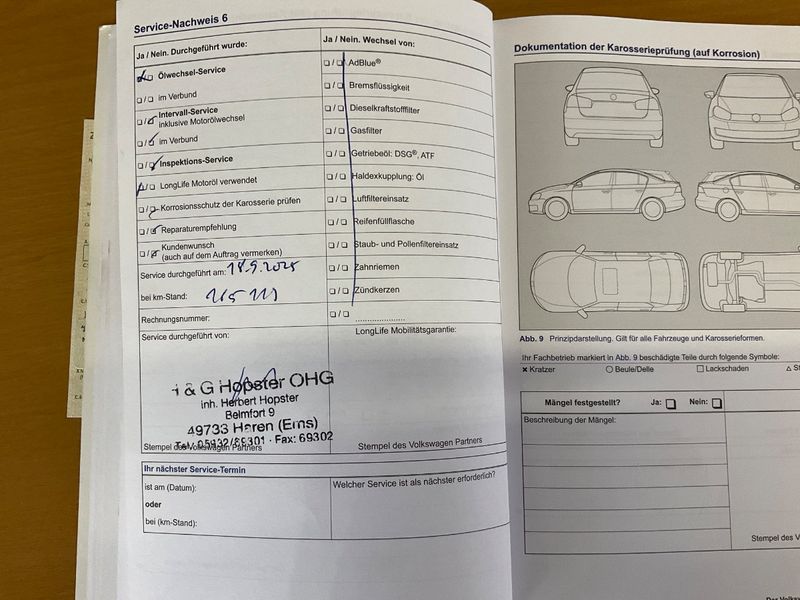 Service-Nachweis 6
Ja / Nein. Durchgeführt wurde:
Ölwechsel-Service
im Verbund
Intervall-Service
inklusive Motorölwechsel
im Verbund
Inspektions-Service
LongLife Motoröl verwendet
Korrosionsschutz der Karosserie prüfen
Reparaturempfehlung
Kundenwunsch
(auch auf dem Auftrag vermerken)
Service durchgeführt am: 18.9.2025
bei km-Stand:
Rechnungsnummer:
Service durchgeführt von:
& G Hopster OHG
inh. Herbert Hopster
Belmfort 9
49733 Haren (Ems)
Tel. 05932/69301 · Fax: 69302
Stempel des Volkswagen Partners
Ja / Nein. Wechsel von:
AdBlue®
Bremsflüssigkeit
Dieselkraftstofffilter
Gasfilter
Getriebeöl: DSG®, ATF
Haldexkupplung: Öl
Luftfiltereinsatz
Reifenfüllflasche
Staub- und Pollenfiltereinsatz
Zahnriemen
Zündkerzen
LongLife Mobilitätsgarantie:
Stempel des Volkswagen Partners
Ihr nächster Service-Termin
ist am (Datum):
oder
bei (km-Stand):
Welcher Service ist als nächster erforderlich?
Dokumentation der Karosserieprüfung (auf Korrosion)
Abb. 9 Prinzipdarstellung. Gilt für alle Fahrzeuge und Karosserieformen.
Ihr Fachbetrieb markiert in Abb. 9 beschädigte Teile durch folgende Symbole:
Kratzer
Beule/Delle
Lackschaden
Mängel festgestellt? Ja: Nein:
Beschreibung der Mängel:
Stempel des V